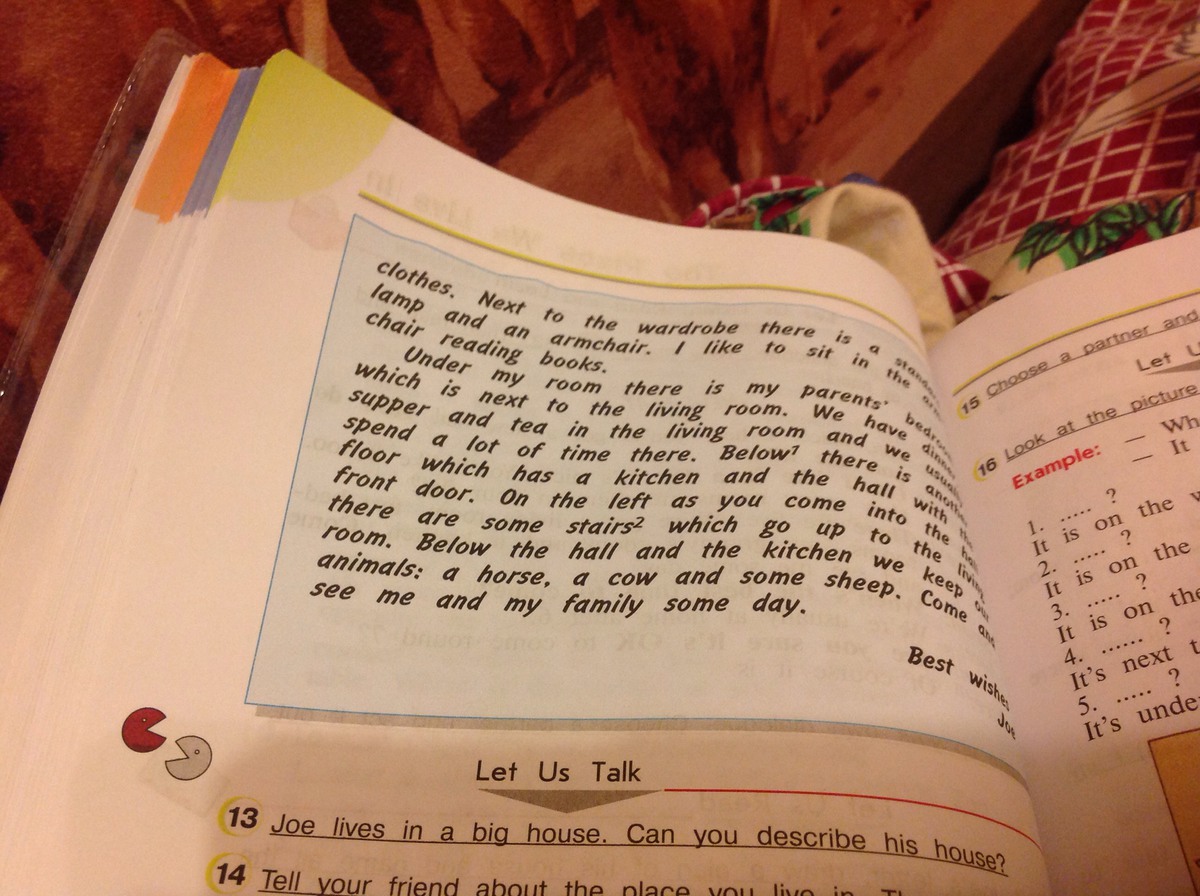 clothes. Next to the wardrobe there is a
lamp and an armchair. I like to sit in the
chair reading books.
Under my room there is my parents'
which is next to the living room. We have
supper and tea in the living room and we
spend a lot of time there. Below¹ there is
floor which has a kitchen and the hall with
front door. On the left as you come into the
there are some stairs² which go up to the
room. Below the hall and the kitchen we keep
animals: a horse, a cow and some sheep. Come and
see me and my family some day.
Best wishes
Joe
Let Us Talk
13 Joe lives in a big house. Can you describe his house?
14 Tell your friend about the place you live in.
15 Choose a partner and
Let
16 Look at the picture
Example: —
— It
1. ..... ?
It is on the
2. ..... ?
It is on the
3. ..... ?
It is on the
4. ...... ?
It's next
5. ..... ?
It's